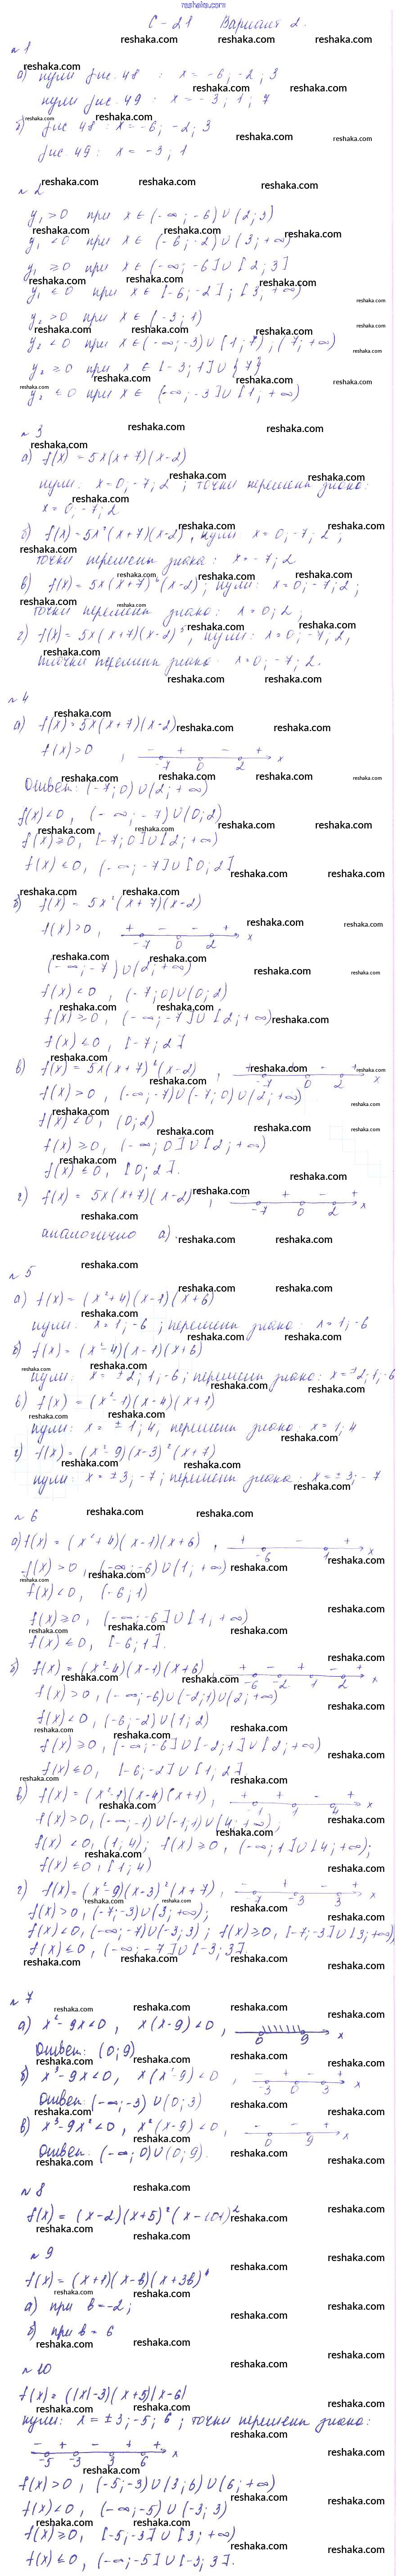 reshaka.com
С-21 Вариант 2.
№1
а) нули рис. 48 : x = -6; -2; 3
нули рис. 49 : x = -3; 1; 7
б) рис 48 : x = -6; -2; 3
рис. 49 : x = -3; 1
№2
y₁ > 0 при x ∈ (-∞; -6) ∪ (2; 3)
y₁ < 0 при x ∈ (-6; -2) ∪ (3; +∞)
y₁ ≥ 0 при x ∈ (-∞; -6] ∪ [2; 3]
y₁ ≤ 0 при x ∈ [-6; -2] ; [3; +∞)
y₂ > 0 при x ∈ (-3; 1)
y₂ < 0 при x ∈ (-∞; -3) ∪ (1; 7) ; (7; +∞)
y₂ ≥ 0 при x ∈ [-3; 1] ∪ {7}
y₂ ≤ 0 при x ∈ (-∞; -3] ∪ [1; +∞)
№3
а) f(x) = 5x(x+7)(x-2)
нули: x = 0; -7; 2 ; точки перемены знака:
x = 0; -7; 2.
б) f(x) = 5x²(x+7)(x-2), нули x = 0; -7; 2 ;
точки перемены знака: x = -7; 2
в) f(x) = 5x(x+7)²(x-2); нули: x = 0; -7; 2;
точки перемены знака: x = 0; 2;
г) f(x) = 5x(x+7)(x-2)³, нули: x = 0; -7; 2,
точки перемены знака: x = 0; -7; 2.
№4
а) f(x) = 5x(x+7)(x-2)
f(x) > 0 , - + - + -7 0 2 x
Ответ: (-7; 0) ∪ (2; +∞)
f(x) < 0, (-∞; -7) ∪ (0; 2)
f(x) ≥ 0, [-7; 0] ∪ [2; +∞)
f(x) ≤ 0, (-∞; -7] ∪ [0; 2]
б) f(x) = 5x²(x+7)(x-2)
f(x) > 0, + - - + -7 0 2 x
(-∞; -7) ∪ (2; +∞)
f(x) < 0, (-7; 0) ∪ (0; 2)
f(x) ≥ 0, (-∞; -7] ∪ [2; +∞)
f(x) ≤ 0, [-7; 2]
в) f(x) = 5x(x+7)²(x-2) , + + - + -7 0 2 x
f(x) > 0, (-∞; -7) ∪ (-7; 0) ∪ (2; +∞)
f(x) < 0, (0; 2)
f(x) ≥ 0, (-∞; 0] ∪ [2; +∞)
f(x) ≤ 0, [0; 2].
г) f(x) = 5x(x+7)(x-2)³ , - + - + -7 0 2 x
аналогично а).
№5
а) f(x) = (x²+4)(x-1)(x+6)
нули: x = 1; -6 ; перемены знака: x = 1; -6
б) f(x) = (x²-4)(x-1)(x+6)
нули: x = ±2; 1; -6; перемены знака: x = ±2; 1; -6
в) f(x) = (x²-1)(x-4)(x+1)
нули: x = ±1; 4, перемены знака: x = 1; 4
г) f(x) = (x²-9)(x-3)²(x+7)
нули: x = ±3; -7; перемены знака: x = ±3; -7
№6
а) f(x) = (x²+4)(x-1)(x+6) , + - + -6 1 x
f(x) > 0, (-∞; -6) ∪ (1; +∞)
f(x) < 0, (-6; 1)
f(x) ≥ 0, (-∞; -6] ∪ [1; +∞)
f(x) ≤ 0, [-6; 1].
б) f(x) = (x²-4)(x-1)(x+6) , + - + - + -6 -2 1 2 x
f(x) > 0, (-∞; -6) ∪ (-2; 1) ∪ (2; +∞)
f(x) < 0, (-6; -2) ∪ (1; 2)
f(x) ≥ 0, (-∞; -6] ∪ [-2; 1] ∪ [2; +∞)
f(x) ≤ 0, [-6; -2] ∪ [1; 2]
в) f(x) = (x²-1)(x-4)(x+1), + + - + -1 1 4 x
f(x) > 0, (-∞; -1) ∪ (-1; 1) ∪ (4; +∞),
f(x) < 0, (1; 4); f(x) ≥ 0, (-∞; 1] ∪ [4; +∞);
f(x) ≤ 0, [1; 4)
г) f(x) = (x²-9)(x-3)²(x+7), - + - + -7 -3 3 x
f(x) > 0, (-7; -3) ∪ (3; +∞);
f(x) < 0, (-∞; -7) ∪ (-3; 3); f(x) ≥ 0, [-7; -3] ∪ [3; +∞),
f(x) ≤ 0, (-∞; -7] ∪ [-3; 3].
№7
а) x² - 9x < 0 , x(x-9) < 0 , 0 9 x
Ответ: (0; 9)
б) x³ - 9x < 0, x(x²-9) < 0 , - + - + -3 0 3 x
Ответ: (-∞; -3) ∪ (0; 3)
в) x³ - 9x² < 0, x²(x-9) < 0, - - + 0 9 x
Ответ: (-∞; 0) ∪ (0; 9).
№8
f(x) = (x-2)(x+5)²(x-101)²
№9
f(x) = (x+1)(x-b)(x+3b)
а) при b = -2;
б) при b = 6
№10
f(x) = (|x|-3)(x+5)|x-6|
нули: x = ±3; -5; 6 ; точки перемены знака:
- + - + + -5 -3 3 6 x
f(x) > 0, (-5; -3) ∪ (3; 6) ∪ (6; +∞)
f(x) < 0, (-∞; -5) ∪ (-3; 3)
f(x) ≥ 0, [-5; -3] ∪ [3; +∞)
f(x) ≤ 0, (-∞; -5] ∪ [-3; 3].